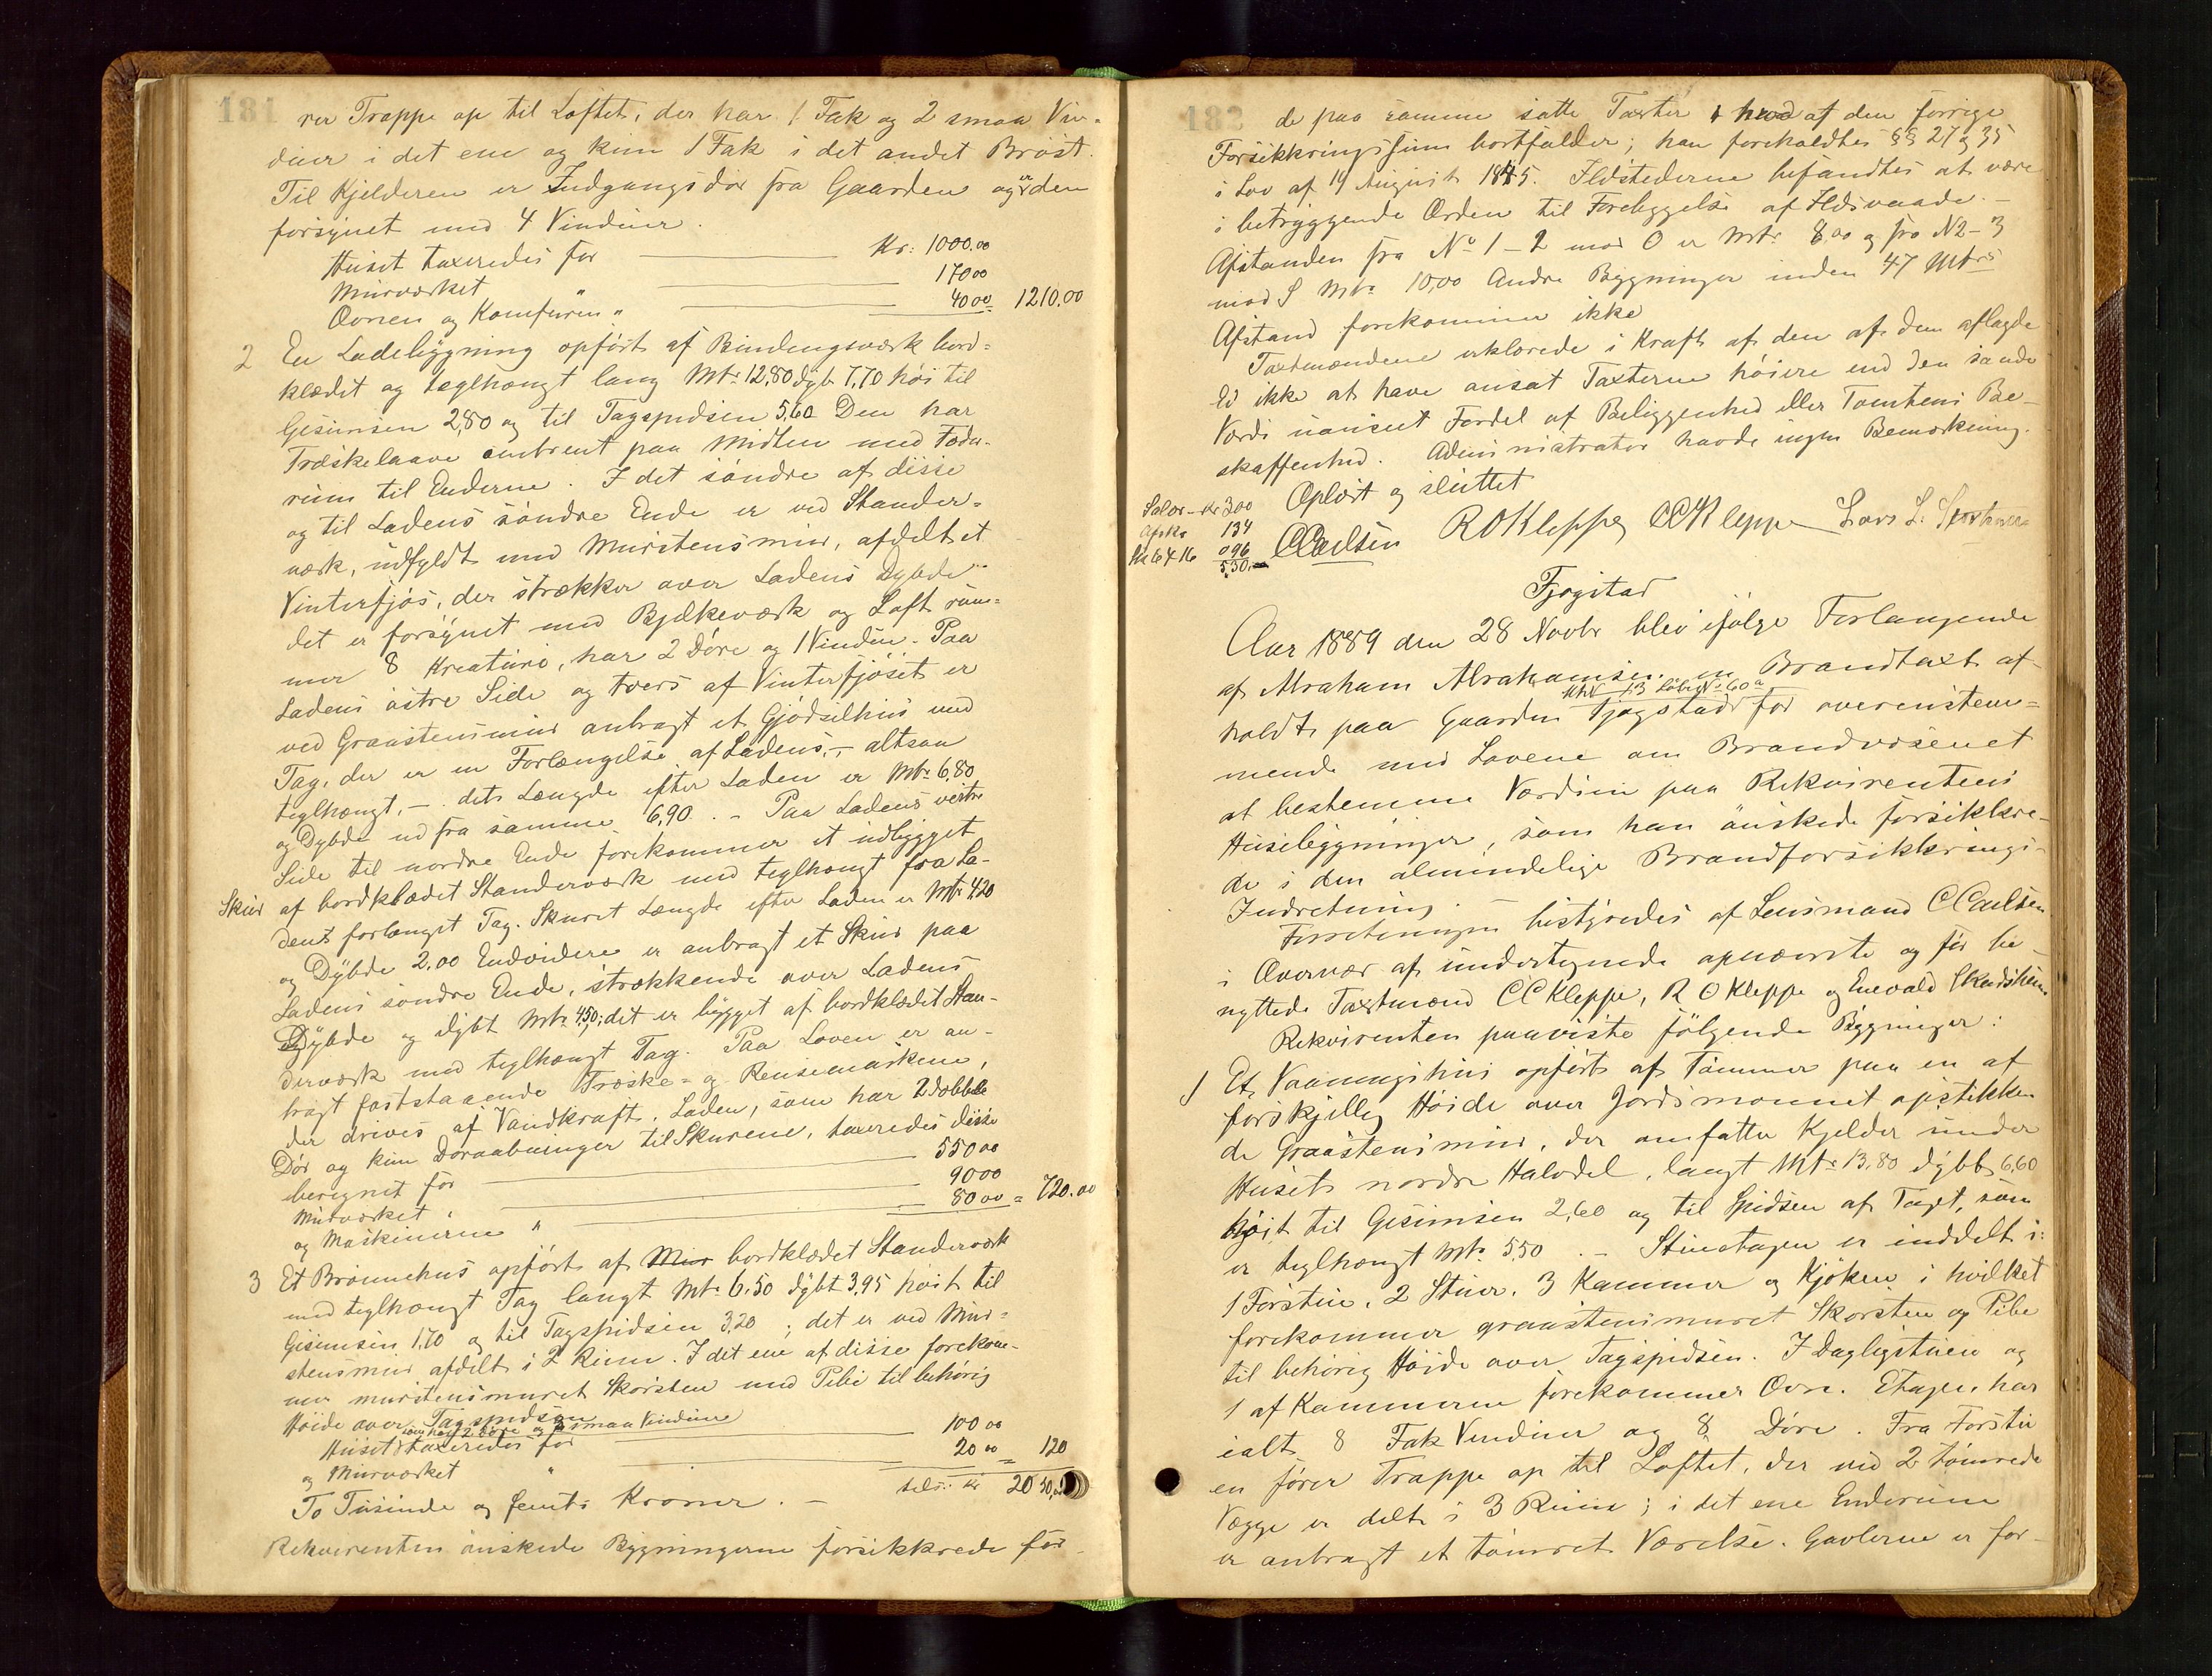 181
rer Trappe op til Loftet, der har 1 Fak og 2 smaa Vin-
duer i det ene og kun 1 Fak i det andet Bröst.
Til Kjelderen er Indgangsdör fra Gaarden og er den
forsynet med 4 Vinduer.
Huset taxeredes for Kr: 1000.00
Murværket 170 00
Ovnen og Komfuren " 40 00 = 1210.00
2 En Ladebygning opfört af Bindingsværk bord-
klædet og teglhængt lang Mtr 12,80 dyb 7,70 höi til
Gesimsen 2,80 og til Tagspidsen 5,60 Den har
Træskelaave omtrent paa Midten med Foder-
rum til Enderne. I det söndre af disse
og til Ladens söndre Ende er ved Stander-
værk, udfyldt med Murstensmur, afdelt et
Vinterfjös, der strækker over Ladens Dybde
det er forsynet med Bjelkeværk og Loft rum-
mer 8 Kreature, har 2 Döre og 1 Vindue. Paa
Ladens östre Side og tvers af Vinterfjöset er
ved Graastensmur anbragt et Gjödselhus med
Tag, der er en Forlængelse af Ladens, - altsaa
teglhængt, - dets Længde efter Laden er Mtr 6,80
og Dybde ud fra samme 6,90. - Paa Ladens vestre
Side til nordre Ende forekommer et udbygget
Skur af bordklædet Standerværk med teglhængt fra La-
dens forlænget Tag. Skuret Længde efter Laden er Mtr 4,20
og Dybde 2,00 Endvidere er anbragt et Skur paa
Ladens söndre Ende, strækkende over Ladens
Dybde og dybt Mtr 4,50; det er bygget af bordklædet Stan-
derværk med teglhængt Tag. Paa Loven er an-
bragt faststaaende Træske- og Rensemaskene,
der drives af Vandkraft. Laden, som har 2 dobbelte
Dör og kun Döraabninger til Skurene, taxeredes disse
beregnet for 550 00
Murværket " 90 00
og Maskinerne " 80 00 = 720.00
3 Et Brönnehus opfört af Mur bordklædet Standerværk
med teglhængt Tag langt Mtr 6,50 dybt 3,95 höit til
Gesimsen 1,70 og til Tagspidsen 3,20; det er ved Mur-
stensmur afdelt i 2 Rum. I det ene af disse forekom-
mer murstensmuret Skorsten med Pibe til behörig
Höide over Tagspidsen
som har 2 Döre og 2 smaa Vinduer
Huset taxeredes for 100 00
og Murværket " 20 00 = 120
To Tusinde og femti Kroner. - tils: Kr 2050,00
Rekvirenten önskede Bygningerne forsikkrede for
182
de paa samme satte Taxter & hvad af den forrige
Forsikkringssum bortfalder; han foreholdtes §§ 27 og 35
i Lov af 19 August 1845. Ildstederne befandtes at være
i betryggende Orden til Forebyggelse af Ildsvaade. -
Afstanden fra No 1-2 mod O er Mtr 8,00 og fra N 2-3
mod S Mtr 10,00 Andre Bygninger inden 47 Mtrs
Afstand forekommer ikke
Taxtmændene erklærede i Kraft af den af dem aflagde
Ed ikke at have ansat Taxterne höiere end den sande
Værdi uanseet Fordel af Beliggenhed eller Tomtens Be-
skaffenhed. Administrator havde ingen Bemærkning.
Oplæst og sluttet
Salær - Kr 3 00
Afskr 1 34
0 96
5,30.
CCarlsen ROKleppe CCKleppe Lars L.
Tjogstad
Aar 1889 den 28 Novbr blev ifölge Forlangende
af Abraham Abrahamsen en Brandtaxt af-
Löbe No 60a
holdt paa Gaarden Tjogstad for overenstem-
mende med Lovene om Brandvæsenet
at bestemme Værdien paa Rekvirentens
Husebygninger, som han önskede forsikkre-
de i den almindelige Brandforsikkrings-
Indretning. -
Forretningen bestyredes af Lensmand CCarlsen
i Overvær af undertegnede opnævnte og för be-
nyttede Taxtmænd CCKleppe, R O Kleppe og Enevald Skadsheim
Rekvirenten paaviste fölgende Bygninger:
1 Et Vaaningshus opfört af Tömmer paa en af
forskjellig Höide over Jordsmonnet opstikken-
de Graastensmur, der omfatter Kjelder under
Husets nordre Halvdel, langt Mtr 13,80 dybt 6,60
höit til Gesimsen 2,60 og til Spidsen af Taget, som
er teglhængt Mtr 5,50. - Stuetagen er inddelt i:
1 Forstue, 2 Stuer, 3 Kammer og Kjöken i hvilket
forekommer graastensmuret Skorsten og Pibe
til behörig Höide over Tagspidsen. I Dagligstuen og
1 af Kammerne forekommer Ovn. Etagen har
ialt 8 Fak Vinduer og 8 Döre. Fra Forstu
en förer Trappe op til Loftet, der ved 2 tömrede
Vægge er delt i 3 Rum; i det ene Enderum
er anbragt et tömret Værelse. Gavlerne er for-